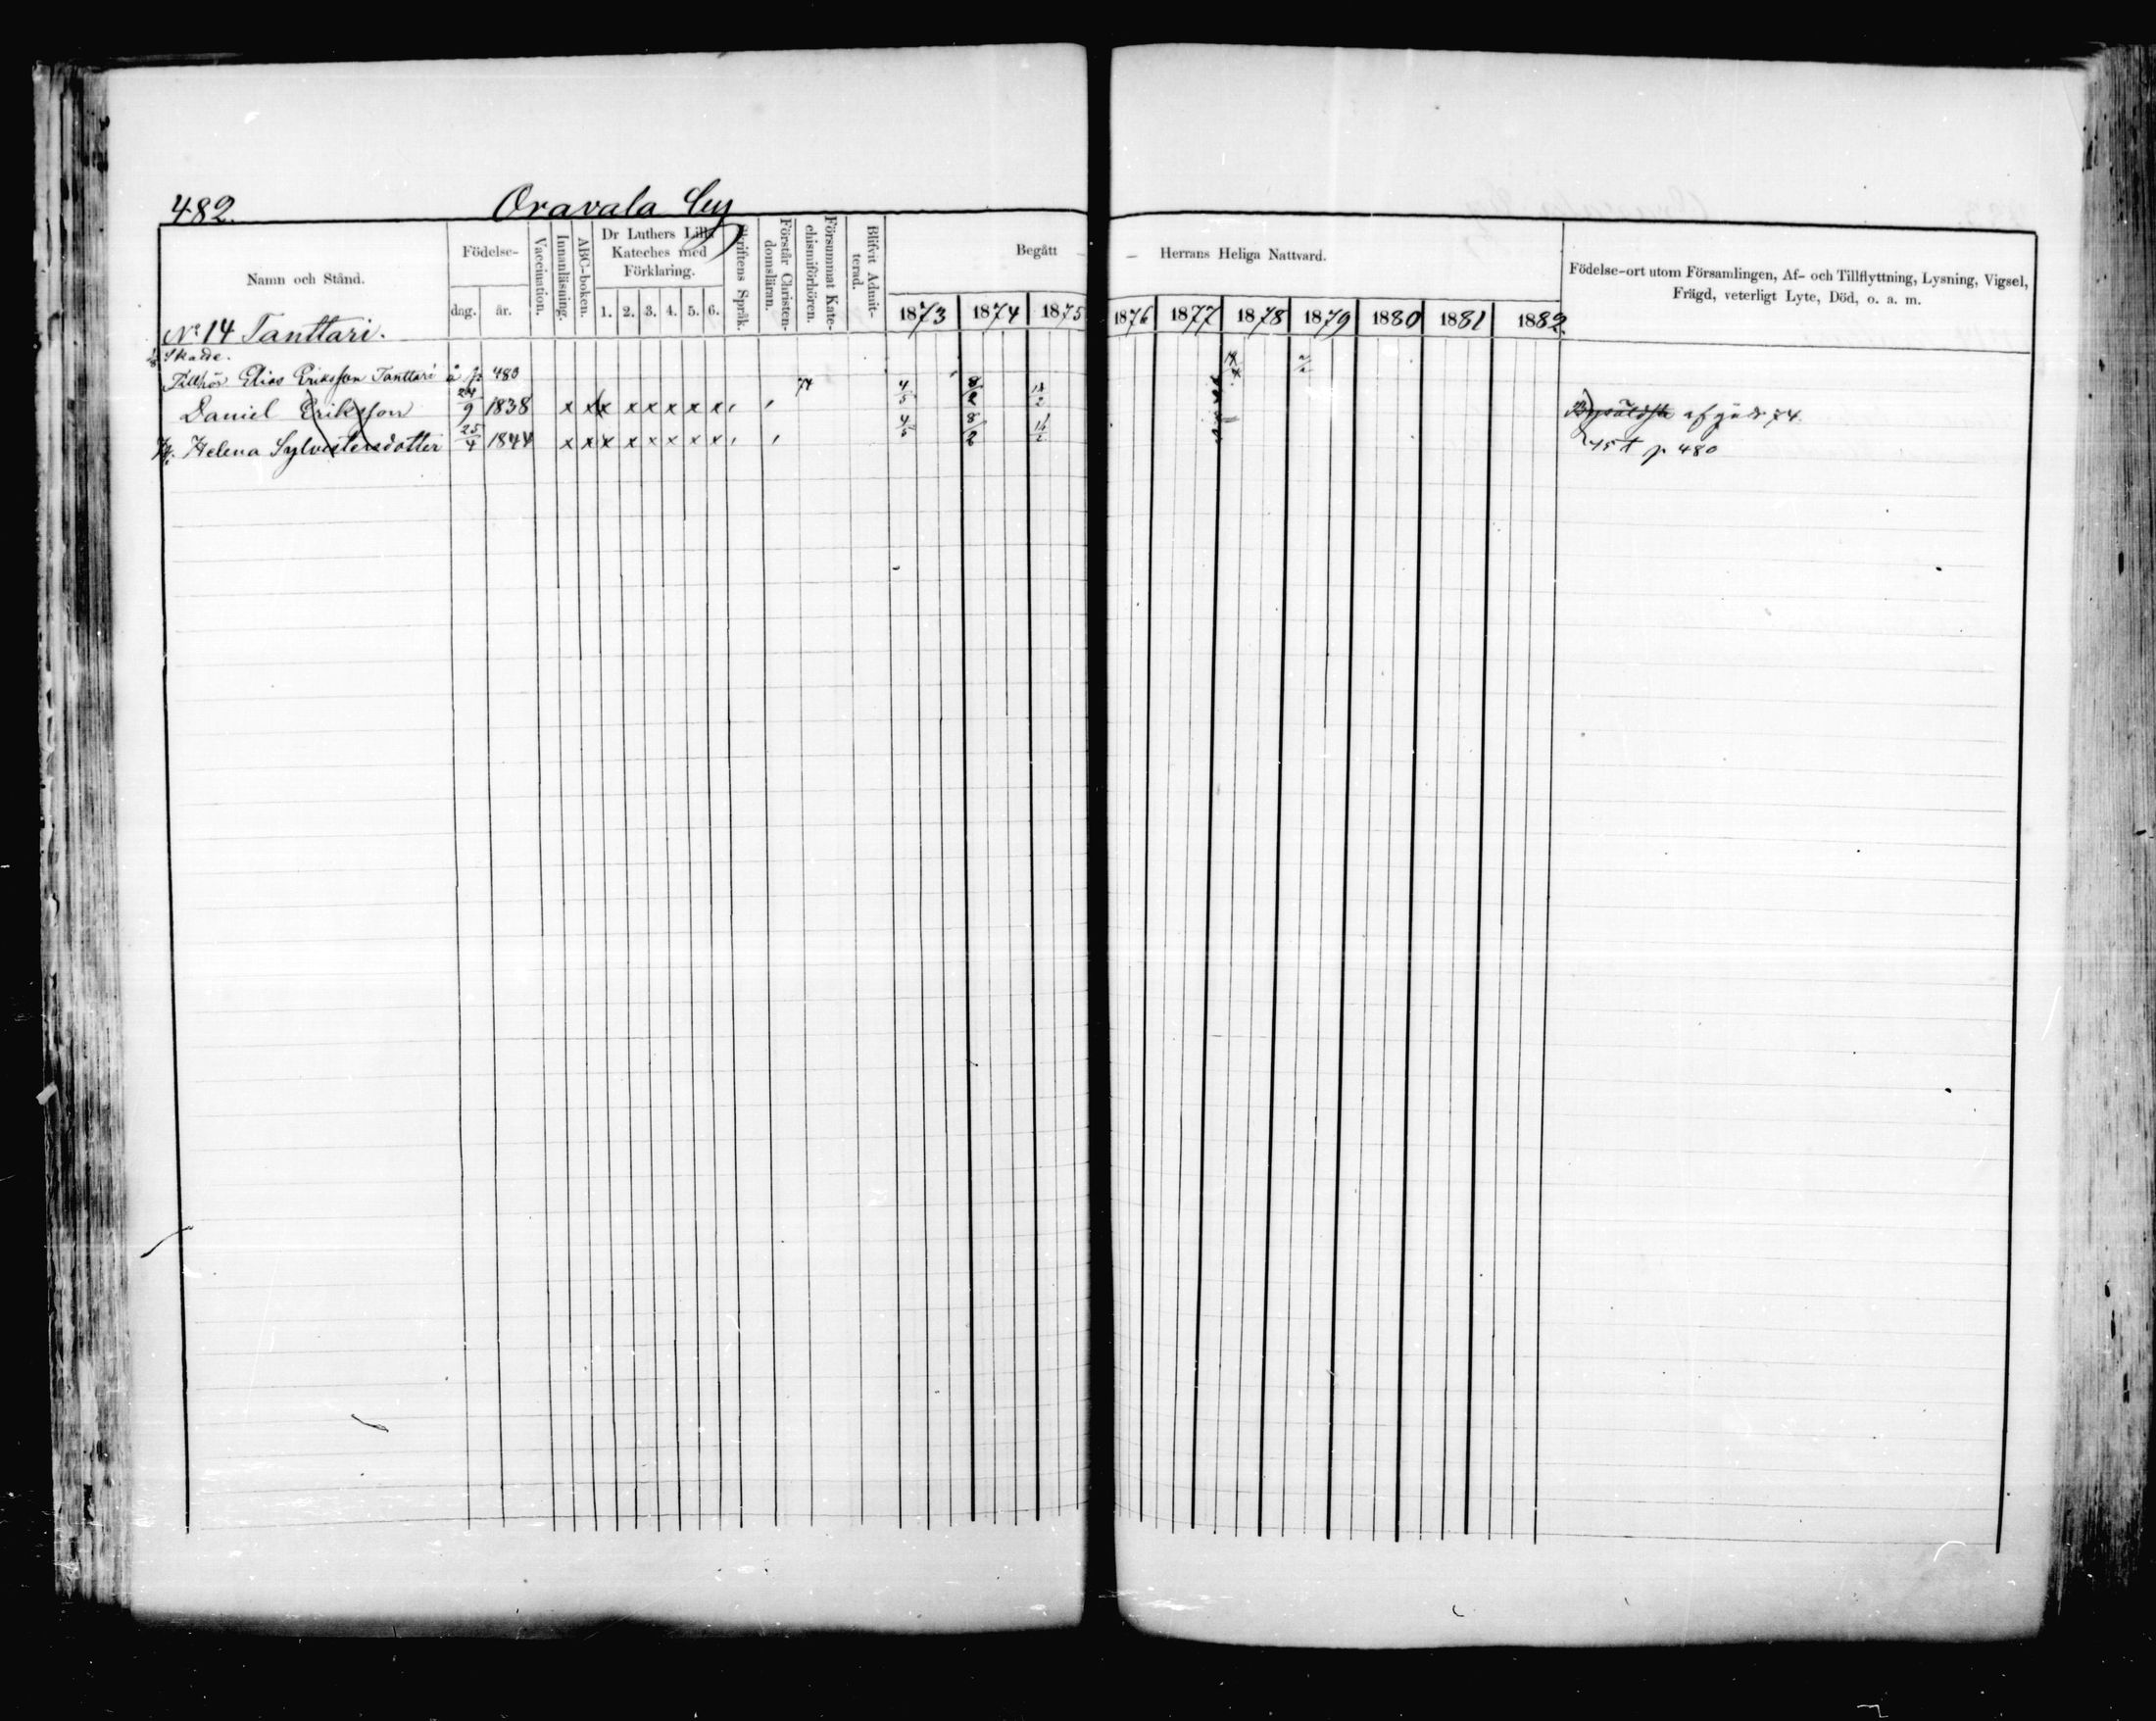 482. Oravala by
Namn och Stånd. Födelse- dag. år. Vaccination. Innanläsning. ABC-boken. Dr Luthers Lilla Kateches med Förklaring. 1. 2. 3. 4. 5. 6. Skriftens Språk. Förstår Christen-domsläran. Försummat Kate-chismiförhören. Blifvit Admit-terad. Begått – – Herrans Heliga Nattvard. 1873 1874 1875 1876 1877 1878 1879 1880 1881 1882. Födelse-ort utom Församlingen, Af- och Tillflyttning, Lysning, Vigsel, Frägd, veterligt Lyte, Död, o. a. m.
No 14 Tanttari.
Skatte.
Tillhör Elias Eriksson Tanttari å p. 480
Daniel Eriksson 24/9 1838 x x x x x x x x 74 4/5 8/2 14/2 afgådt 74.
H. Helena Sylvestersdotter 25/4 1844 x x x x x x x x 4/5 8/2 14/2 75 t p. 480